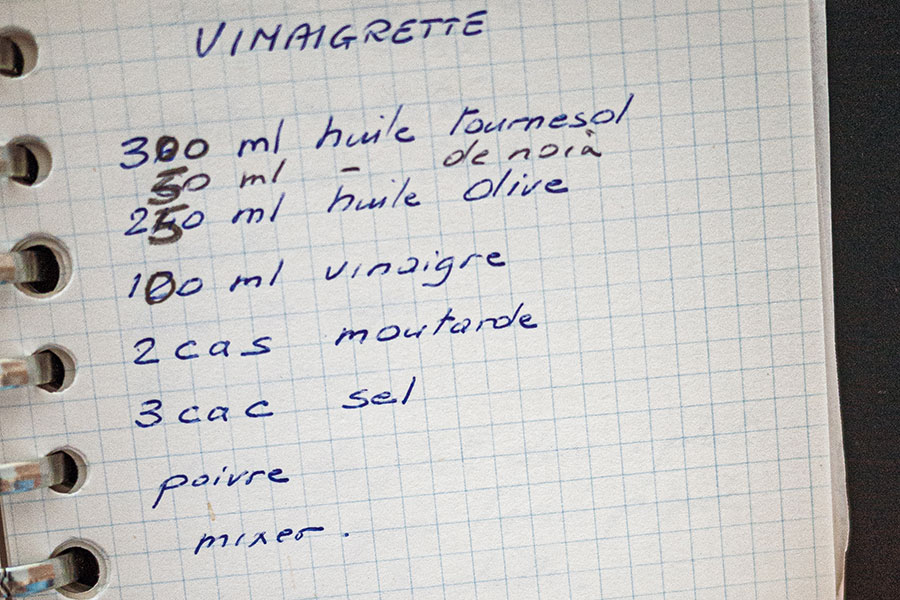 VINAIGRETTE
300 ml huile tournesol
50 ml - de noix
250 ml huile olive
100 ml vinaigre
2 cas moutarde
3 cac sel
poivre
mixer.